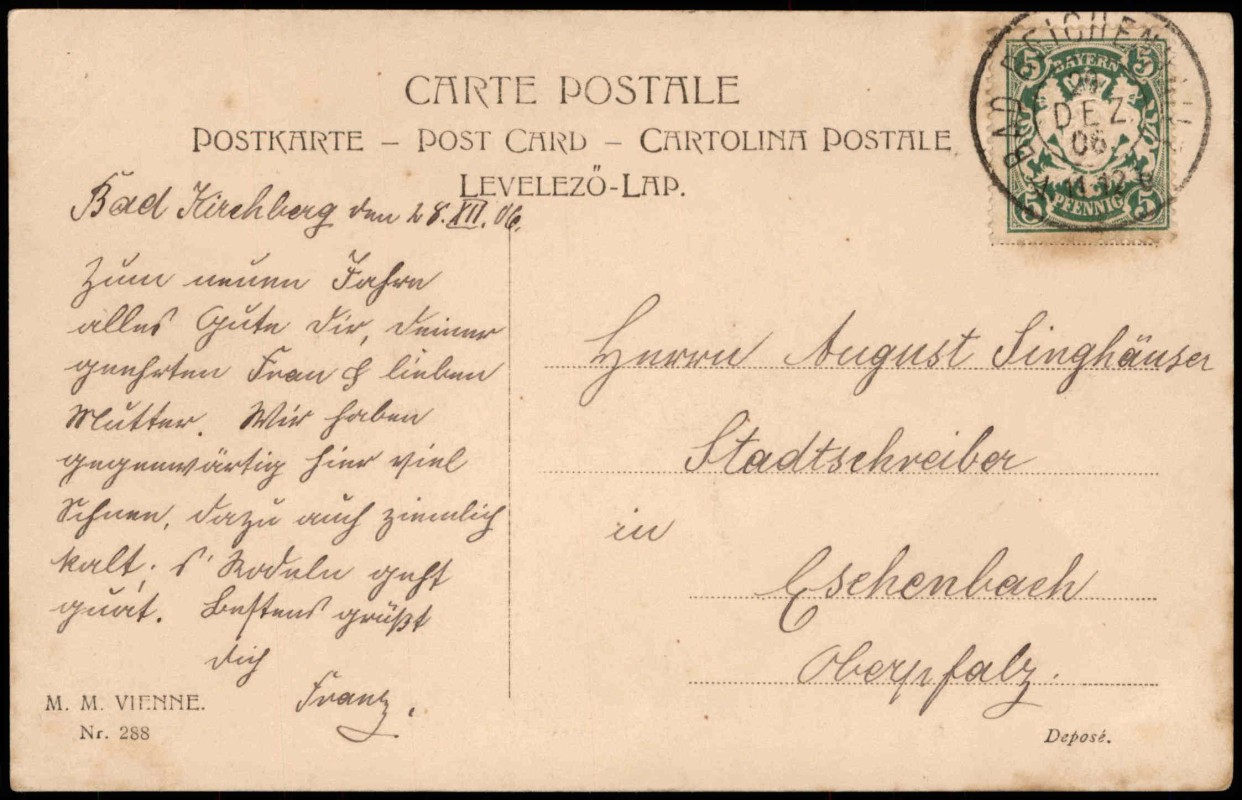 CARTE POSTALE
POSTKARTE – POST CARD – CARTOLINA POSTALE
LEVELEZŐ-LAP.
BAD REICHENHALL
DEZ.
06
11-12
5 BAYERN 5
5 PFENNIG 5
Bad Kirchberg den 28. XII. 06.
Zum neuen Jahre
alles Gute Dir, Deiner
geehrten Frau & lieben
Mutter. Wir haben
gegenwärtig hier viel
Schnee, dazu auch ziemlich
kalt; s' Rodeln geht
guat. Bestens grüßt
Dich
Franz.
Herrn August Singhäuser
Stadtschreiber
in
Eschenbach
Oberpfalz.
M. M. VIENNE.
Nr. 288
Deposé.